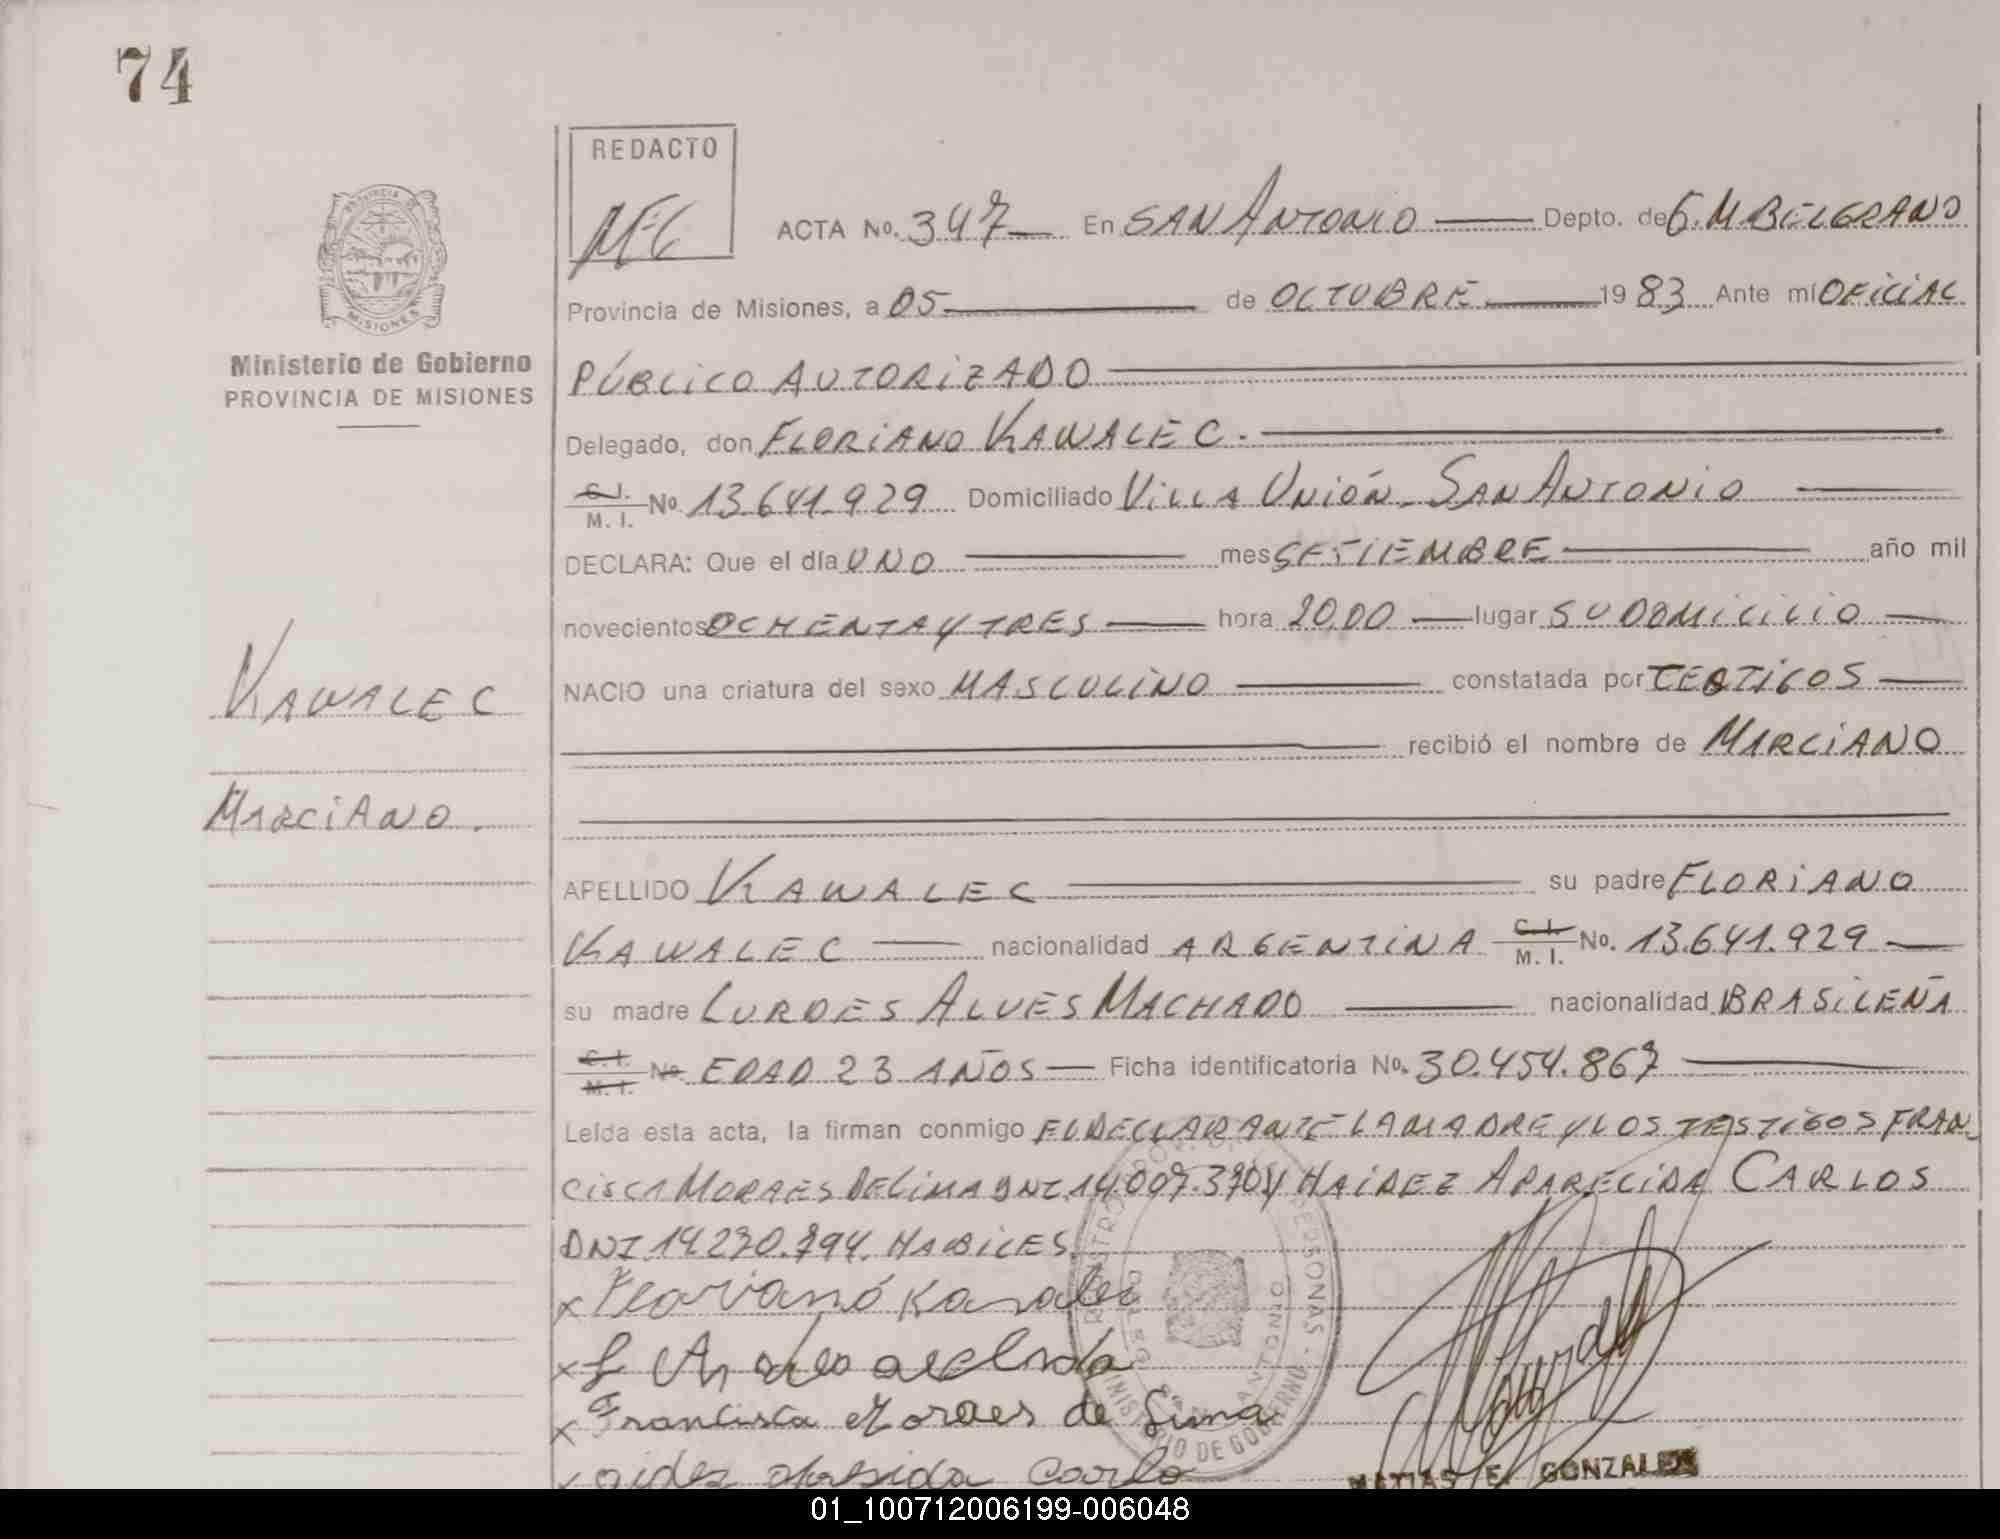 74
REDACTO
ACTA No. 347 En SAN ANTONIO Depto. de G. M. BELGRANO
Provincia de Misiones, a 05 de OCTUBRE 1983 Ante mí OFICIAL
PROVINCIA DE
MISIONES
Ministerio de Gobierno
PROVINCIA DE MISIONES
PÚBLICO AUTORIZADO
Delegado, don FLORIANO KAWALEC.
C. I.
M. I. No. 13.641.929 Domiciliado VILLA UNIÓN - SAN ANTONIO
DECLARA: Que el día UNO mes SETIEMBRE año mil
novecientos OCHENTA Y TRES hora 20,00 lugar SU DOMICILIO
NACIO una criatura del sexo MASCULINO constatada por TESTIGOS
KAWALEC
recibió el nombre de MARCIANO
MARCIANO.
APELLIDO KAWALEC su padre FLORIANO
KAWALEC nacionalidad ARGENTINA C. I. M. I. No. 13.641.929
su madre LURDES ALVES MACHADO nacionalidad BRASILEÑA
C. I. M. I. No. EDAD 23 AÑOS Ficha identificatoria No. 30.454.867
Leída esta acta, la firman conmigo EL DECLARANTE LA MADRE Y LOS TESTIGOS FRAN
CISCA MORAES DE LIMA DNI. 14.007.370 Y HAIDEZ APARECIDA CARLOS
DNI. 14.230.794. HABILES.
x Floriano Kawalec
x L
x Francisca Moraes de Lima
aidez aparesida Carlo
MINISTERIO DE GOBIERNO
MATIAS E. GONZALEZ
01_100712006199-006048